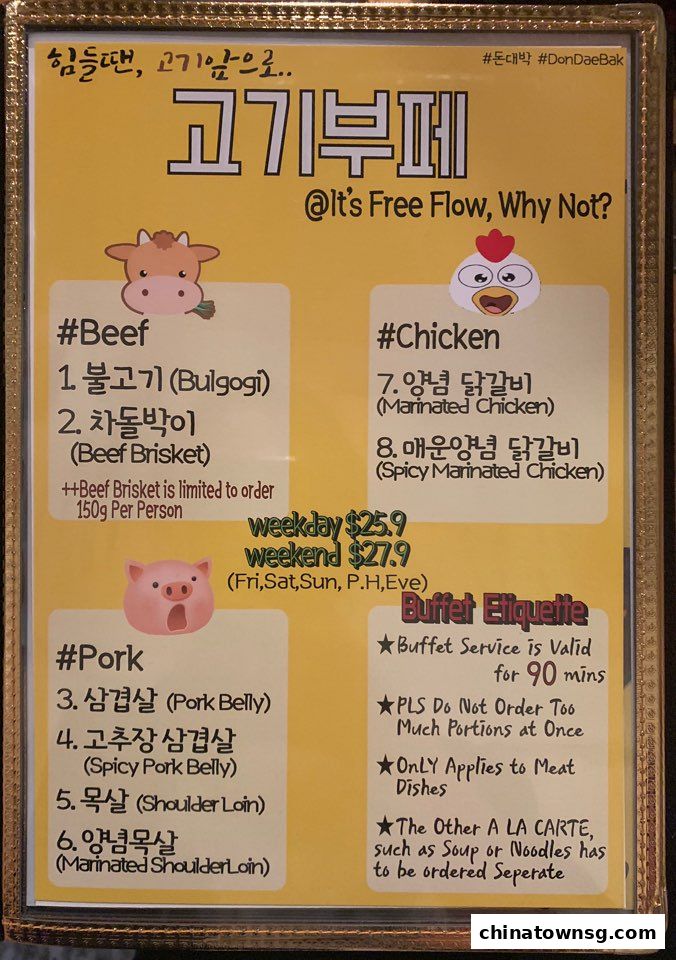 힘들땐, 고기앞으로..
#돈대박 #DonDaeBak
고기부페
@It's Free Flow, Why Not?
#Beef
1. 불고기 (Bulgogi)
2. 차돌박이
(Beef Brisket)
++Beef Brisket is limited to order
150g Per Person
#Chicken
7. 양념 닭갈비
(Marinated Chicken)
8. 매운양념 닭갈비
(Spicy Marinated Chicken)
weekday $25.9
weekend $27.9
(Fri,Sat,Sun, P.H,Eve)
#Pork
3. 삼겹살 (Pork Belly)
4. 고추장 삼겹살
(Spicy Pork Belly)
5. 목살 (Shoulder Loin)
6. 양념목살
(Marinated ShoulderLoin)
Buffet Etiquette
★Buffet Service is Valid
for 90 mins
★PLS Do Not Order Too
Much Portions at Once
★OnLY Applies to Meat
Dishes
★The Other A LA CARTE,
such as Soup or Noodles has
to be ordered Seperate
chinatownsg.com